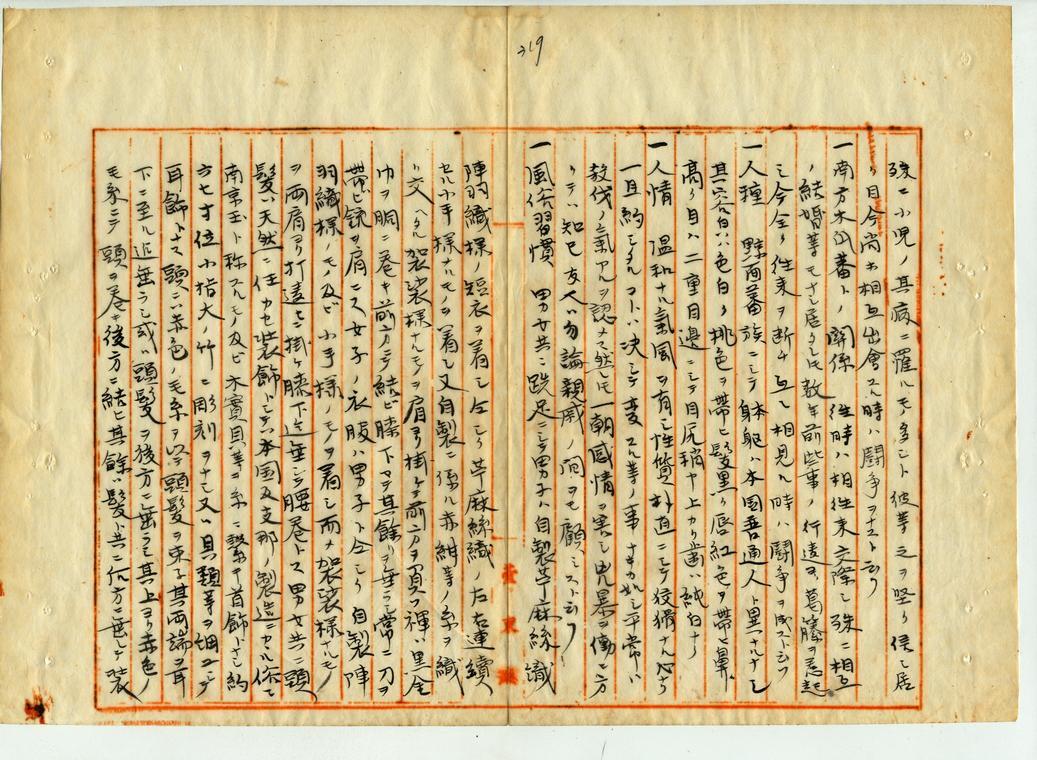 219
殊ニ小児ノ其病ニ罹ルモノ多シト彼等之ヲ堅ク信シ居
リ目今尚ホ相互出會スル時ハ闘争ヲナスト云フ
一南方木瓜蕃トノ關係 往時ハ相往来交際シ殊ニ相互
ノ結婚等モナシ居タルモ数年前些事ノ行違ヨリ葛藤ヲ惹起
シ今全ク往来ヲ断チ互ニ相見ル時ハ闘争ヲ成スト云フ
一人種 黥面蕃族ニシテ躰躯ハ本国普通人ト異ルナシ
其容白ハ色白ク桃色ヲ帯ヒ髪黒ク唇紅色ヲ帯ヒ鼻
高ク目ハ二重目邊ニシテ目尻稍中上カリ歯ハ純白ナリ
一人情 温和ナル氣風ヲ有シ性質朴直ニシテ狡猾ナル心ナク
一旦約シタルコトハ决シテ変スル等ノ事ナキカ如シ平常ハ
殺伐ノ氣アルヲ認メス然レモ一朝感情ヲ害シ兇暴ヲ働クニ方
リテハ知己友人ハ勿論親戚ノ間ヲモ顧ミスト云フ
一風俗習慣 男女共ニ跣足ニシテ男子ハ自製苧麻絲織
陣羽織様ノ短衣ヲ着シ全シク苧麻絲織ノ左右連續
セル小手様ナルモノヲ着シ又自製ニ係ル赤紺等ノ糸ヲ織
リ交ヘタル袈裟様ナルモノヲ肩ヨリ掛ケテ前方ヲ貫ヌ褌ハ黒金
巾ヲ胴ニ巻キ前方ニテ結ビ膝下マテ其餘リヲ垂ラシ常ニ刀ヲ
帯ビ銃ヲ肩ニス女子ノ衣服ハ男子ト仝シク自製陣
羽織様ノモノ及ビ小手様ノモノヲ着シ而メ袈裟様ナルモノ
ヲ両肩ヨリ打違ヒニ掛ケ膝下迄垂シテ腰巻トス男女共ニ頭
髪ハ天然ニ任カセ装飾トシテハ本国及支那ノ製造ニカヽル俗ニ
南京玉ト称スルモノ及ビ木實貝等ヲ糸ニ繋キ首飾トナシ約
六七寸位小指大ノ竹ニ彫刻ヲナス又ハ貝類等ヲ細工シテ
耳飾トナス頭ニ赤色ノ毛糸ヲ以テ頭髪ヲ束子其両端ヲ耳
下ニ至ル迄垂ラシ或ハ頭髪ヲ後方ニ垂ラシ其上ヨリ赤色ノ
毛糸ニテ頭ヲ巻キ後方ニ結ヒ其餘ハ髪ト共ニ后方ニ垂シテ装